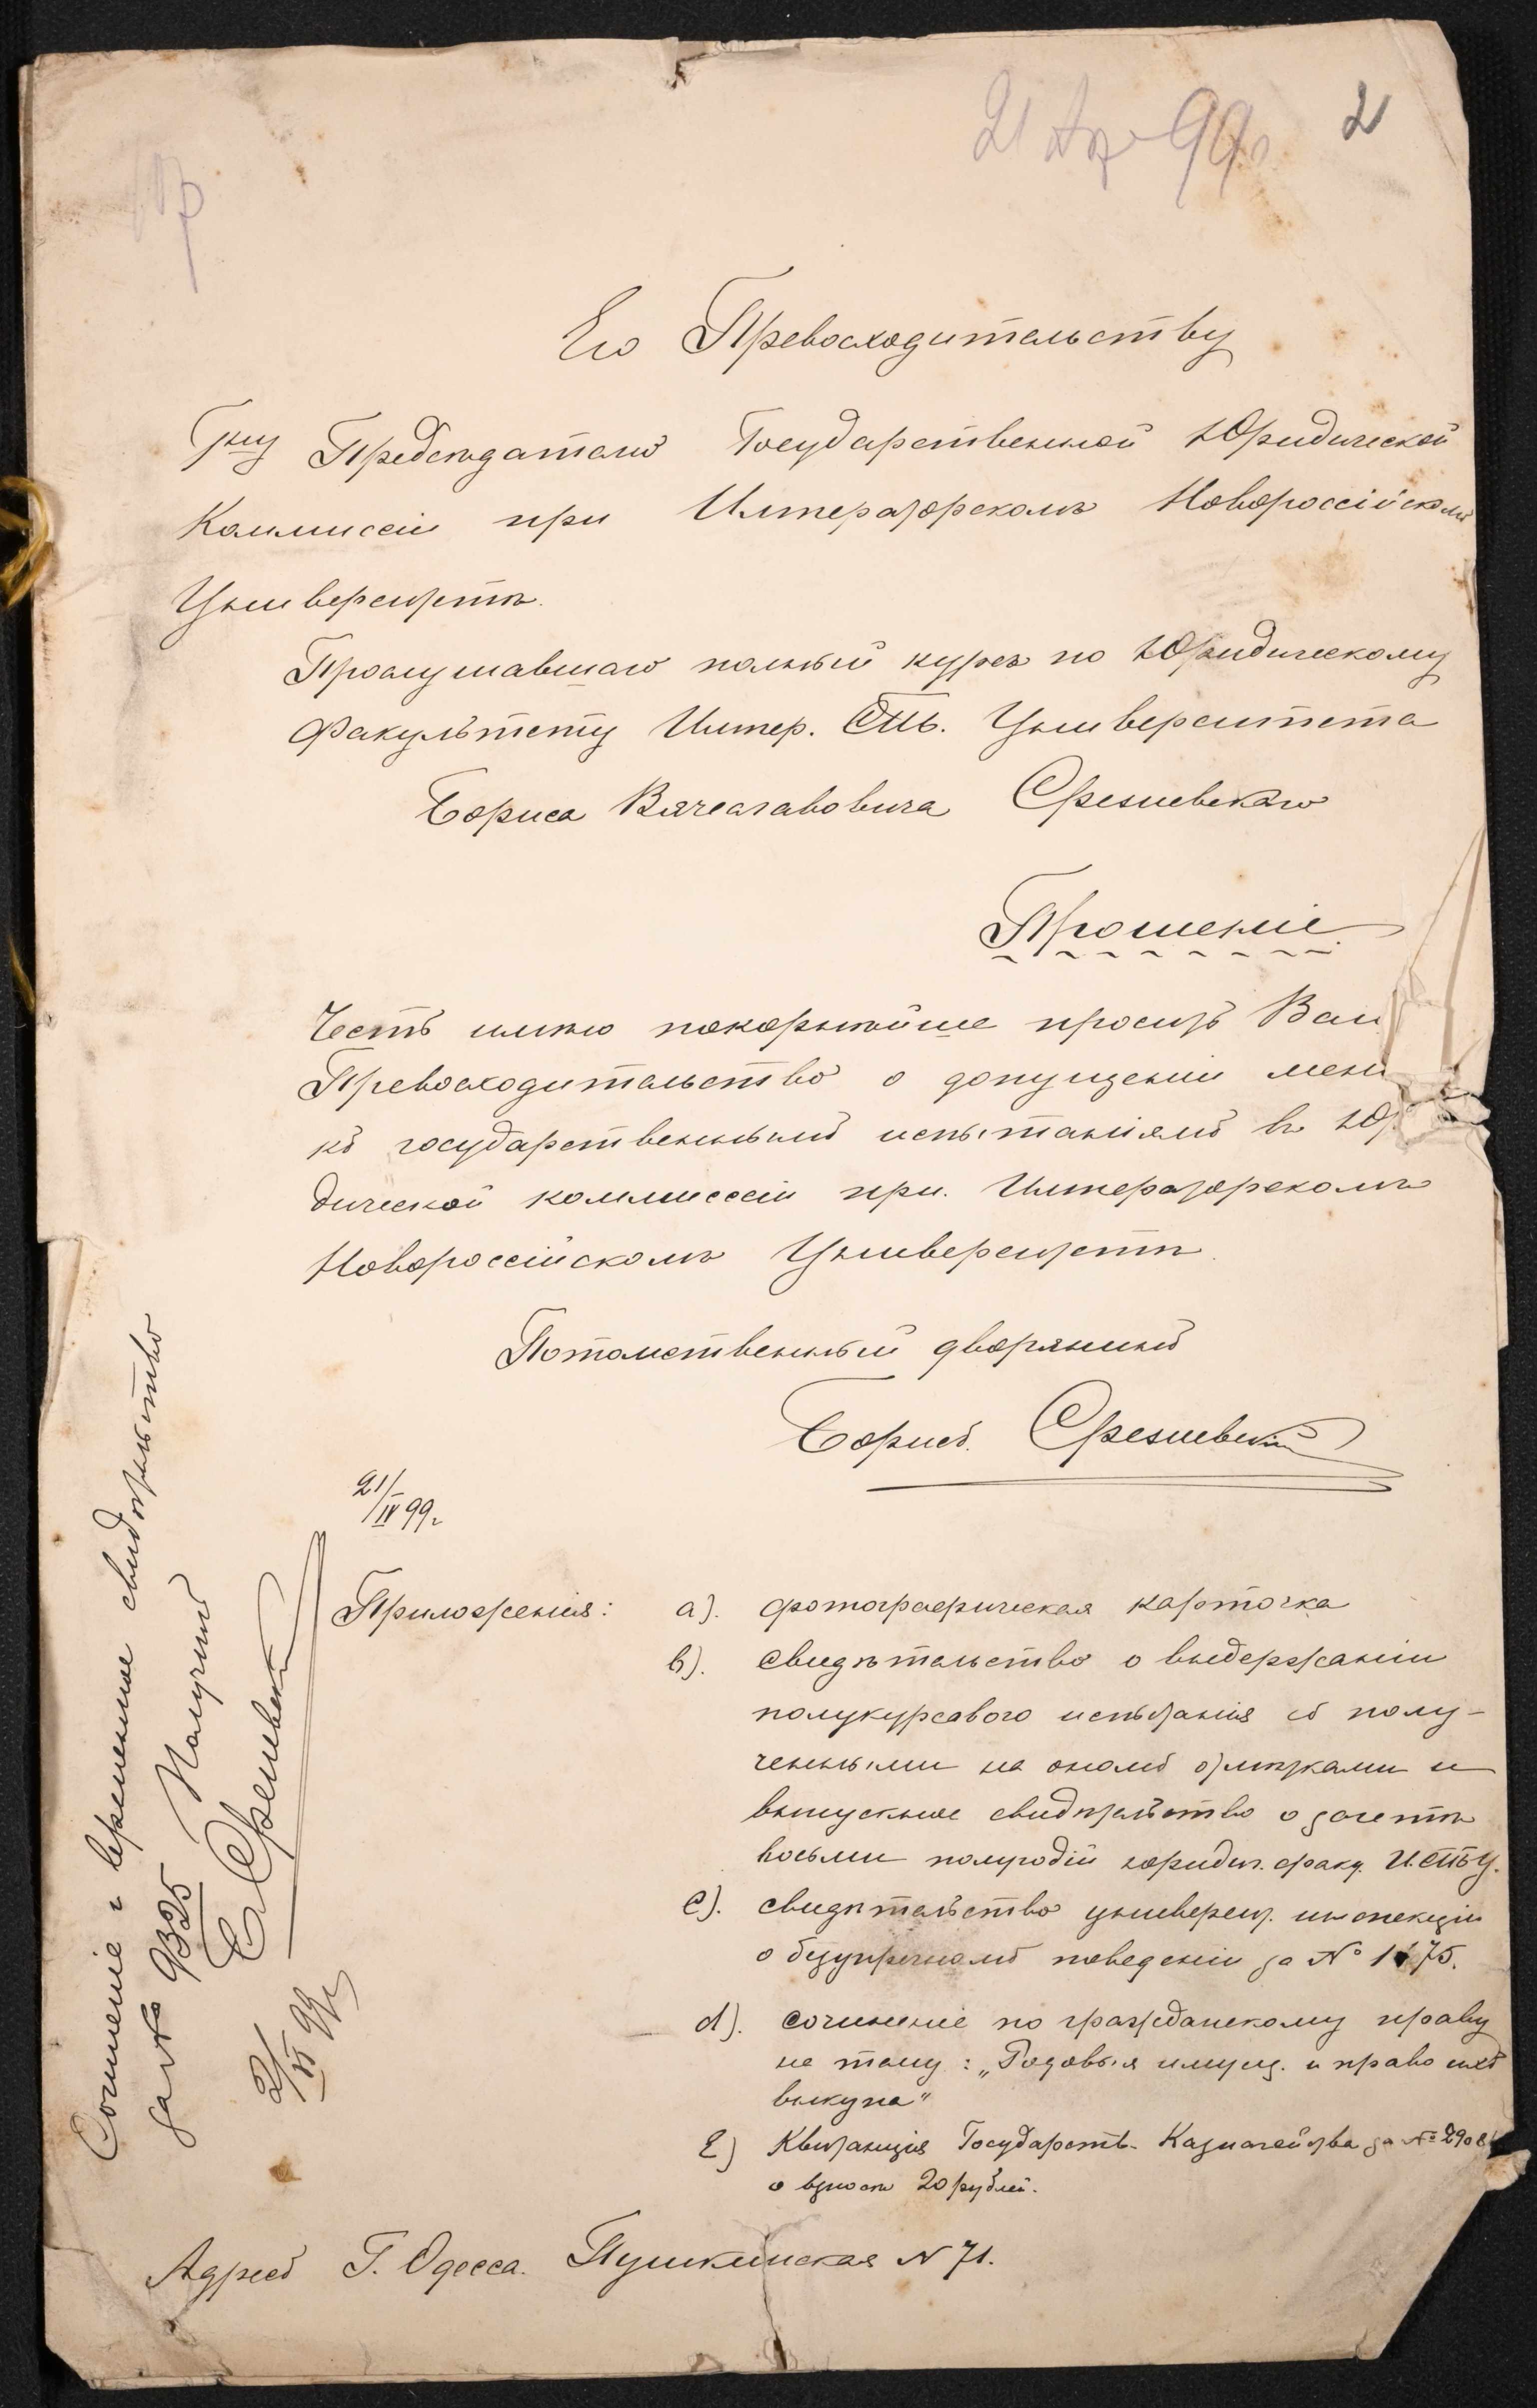 21 Апр 99 г.
2
Его Превосходительству
Г-ну Предсѣдателю Государственной Юридической
Коммиссіи при Императорскомъ Новороссійскомъ
Университетѣ.
Прослушавшаго полный курсъ по Юридическому
факультету Импер. СПб. Университета
Бориса Вячеславовича Срезневскаго
Прошеніе.
Честь имѣю покорнѣйше просить Ваш
Превосходительство о допущеніи мен
къ государственнымъ испытаніямъ въ Юр
дической коммиссіи при Императорскомъ
Новороссійскомъ Университетѣ.
Потомственный дворянинъ
Борисъ Срезневскій
21/IV 99 г.
Приложенія: а). фотографическая карточка
b). свидѣтельство о выдержаніи
полукурсового испытанія съ полу-
ченными на ономъ отмѣтками и
выпускное свидѣтельство о зачетѣ
восьми полугодій юридич. факу. И.СПб.У.
c). свидѣтельство университ. инспекціи
о безупречномъ поведеніи за № 1175.
d). сочиненіе по гражданскому праву
на тему: „Родовыя имущ. и право ихъ
выкупа"
e) Квитанція Государств. Казначейства за № 2908
о взносѣ 20 рублей.
Адресъ Г. Одесса. Пушкинская N 71.
Сочиненіе и временное свидѣтельство
за № 9325 Получилъ
Б Срезневскій
2/XI 99 г.